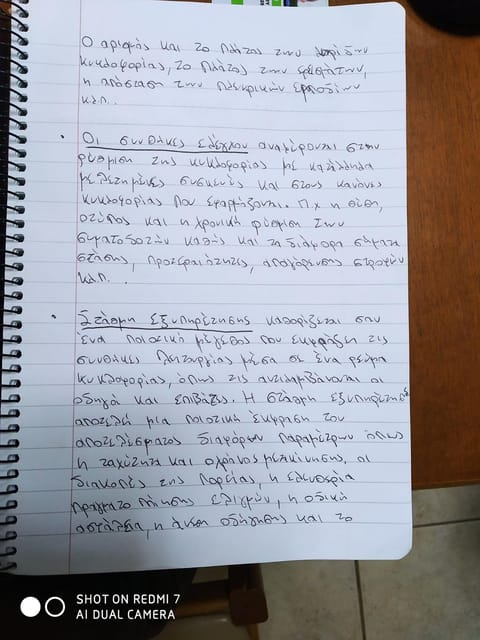 Ο αριθμός και το πλάτος των λωρίδων
κυκλοφορίας, το πλάτος των ερεισμάτων,
η απόσταση των πλευρικών εμποδίων
κ.λ.π..
• Οι συνθήκες ελέγχου αναφέρονται στην
ρύθμιση της κυκλοφορίας με κατάλληλα
μελετημένες συσκευές και στους κανόνες
κυκλοφορίας που εφαρμόζονται. Π.χ η θέση,
ο τύπος και η χρονική ρύθμιση των
σηματοδοτών καθώς και τα διάφορα σήματα
στάσης, προτεραιότητες, απαγόρευσης στροφών
κ.λ.π. .
• Στάθμη εξυπηρέτησης καθορίζεται σαν
ένα ποιοτικό μέγεθος που εκφράζει τις
συνθήκες λειτουργίας μέσα σε ένα ρεύμα
κυκλοφορίας, όπως τις αντιλαμβάνονται οι
οδηγοί και επιβάτες. Η στάθμη εξυπηρέτησης
αποτελεί μια ποιοτική έκφραση του
αποτελέσματος διαφόρων παραμέτρων όπως
η ταχύτητα και ο χρόνος μετακίνησης, οι
διακοπές της πορείας, η ελευθερία
πραγματοποίησης ελιγμών, η οδική
ασφάλεια, η άνεση οδήγησης και το
SHOT ON REDMI 7
AI DUAL CAMERA